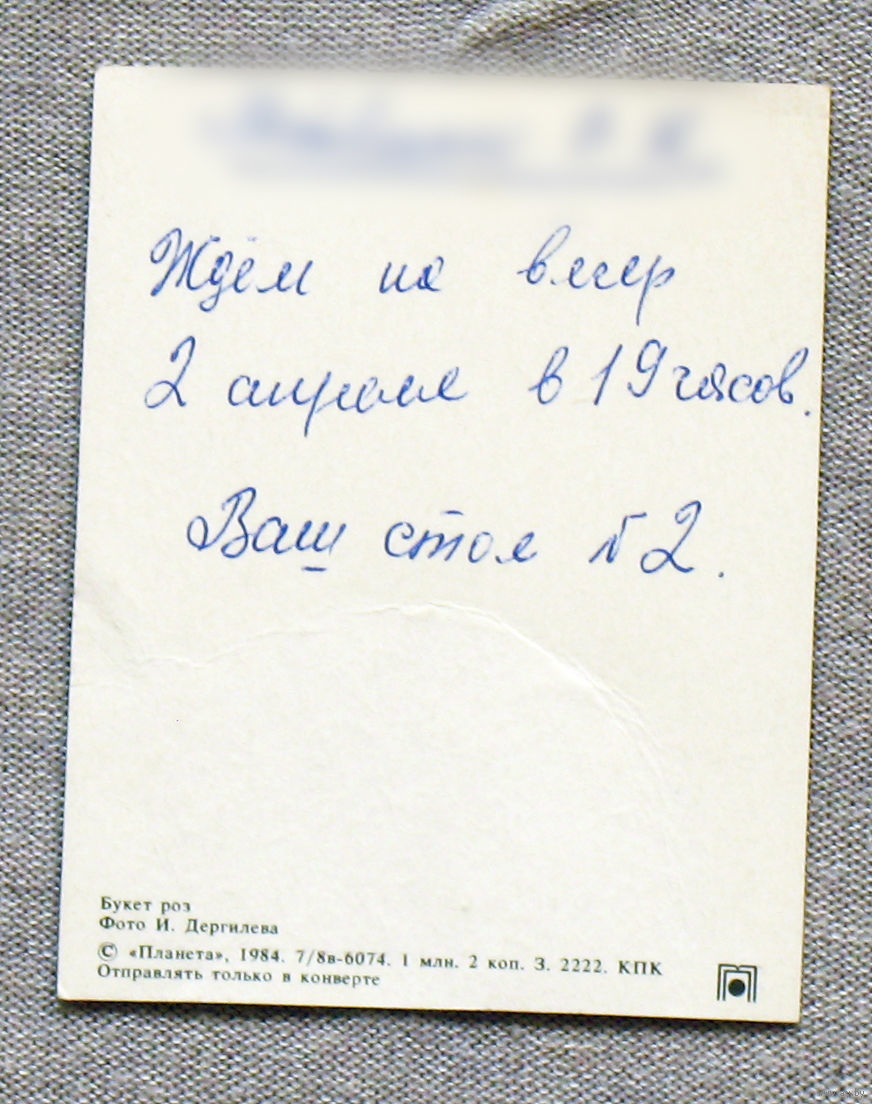 Ждём на вечер
2 апреля в 19 часов.
Ваш стол № 2.
Букет роз
Фото И. Дергилева
© «Планета», 1984. 7/8в-6074. 1 млн. 2 коп. З. 2222. КПК
Отправлять только в конверте